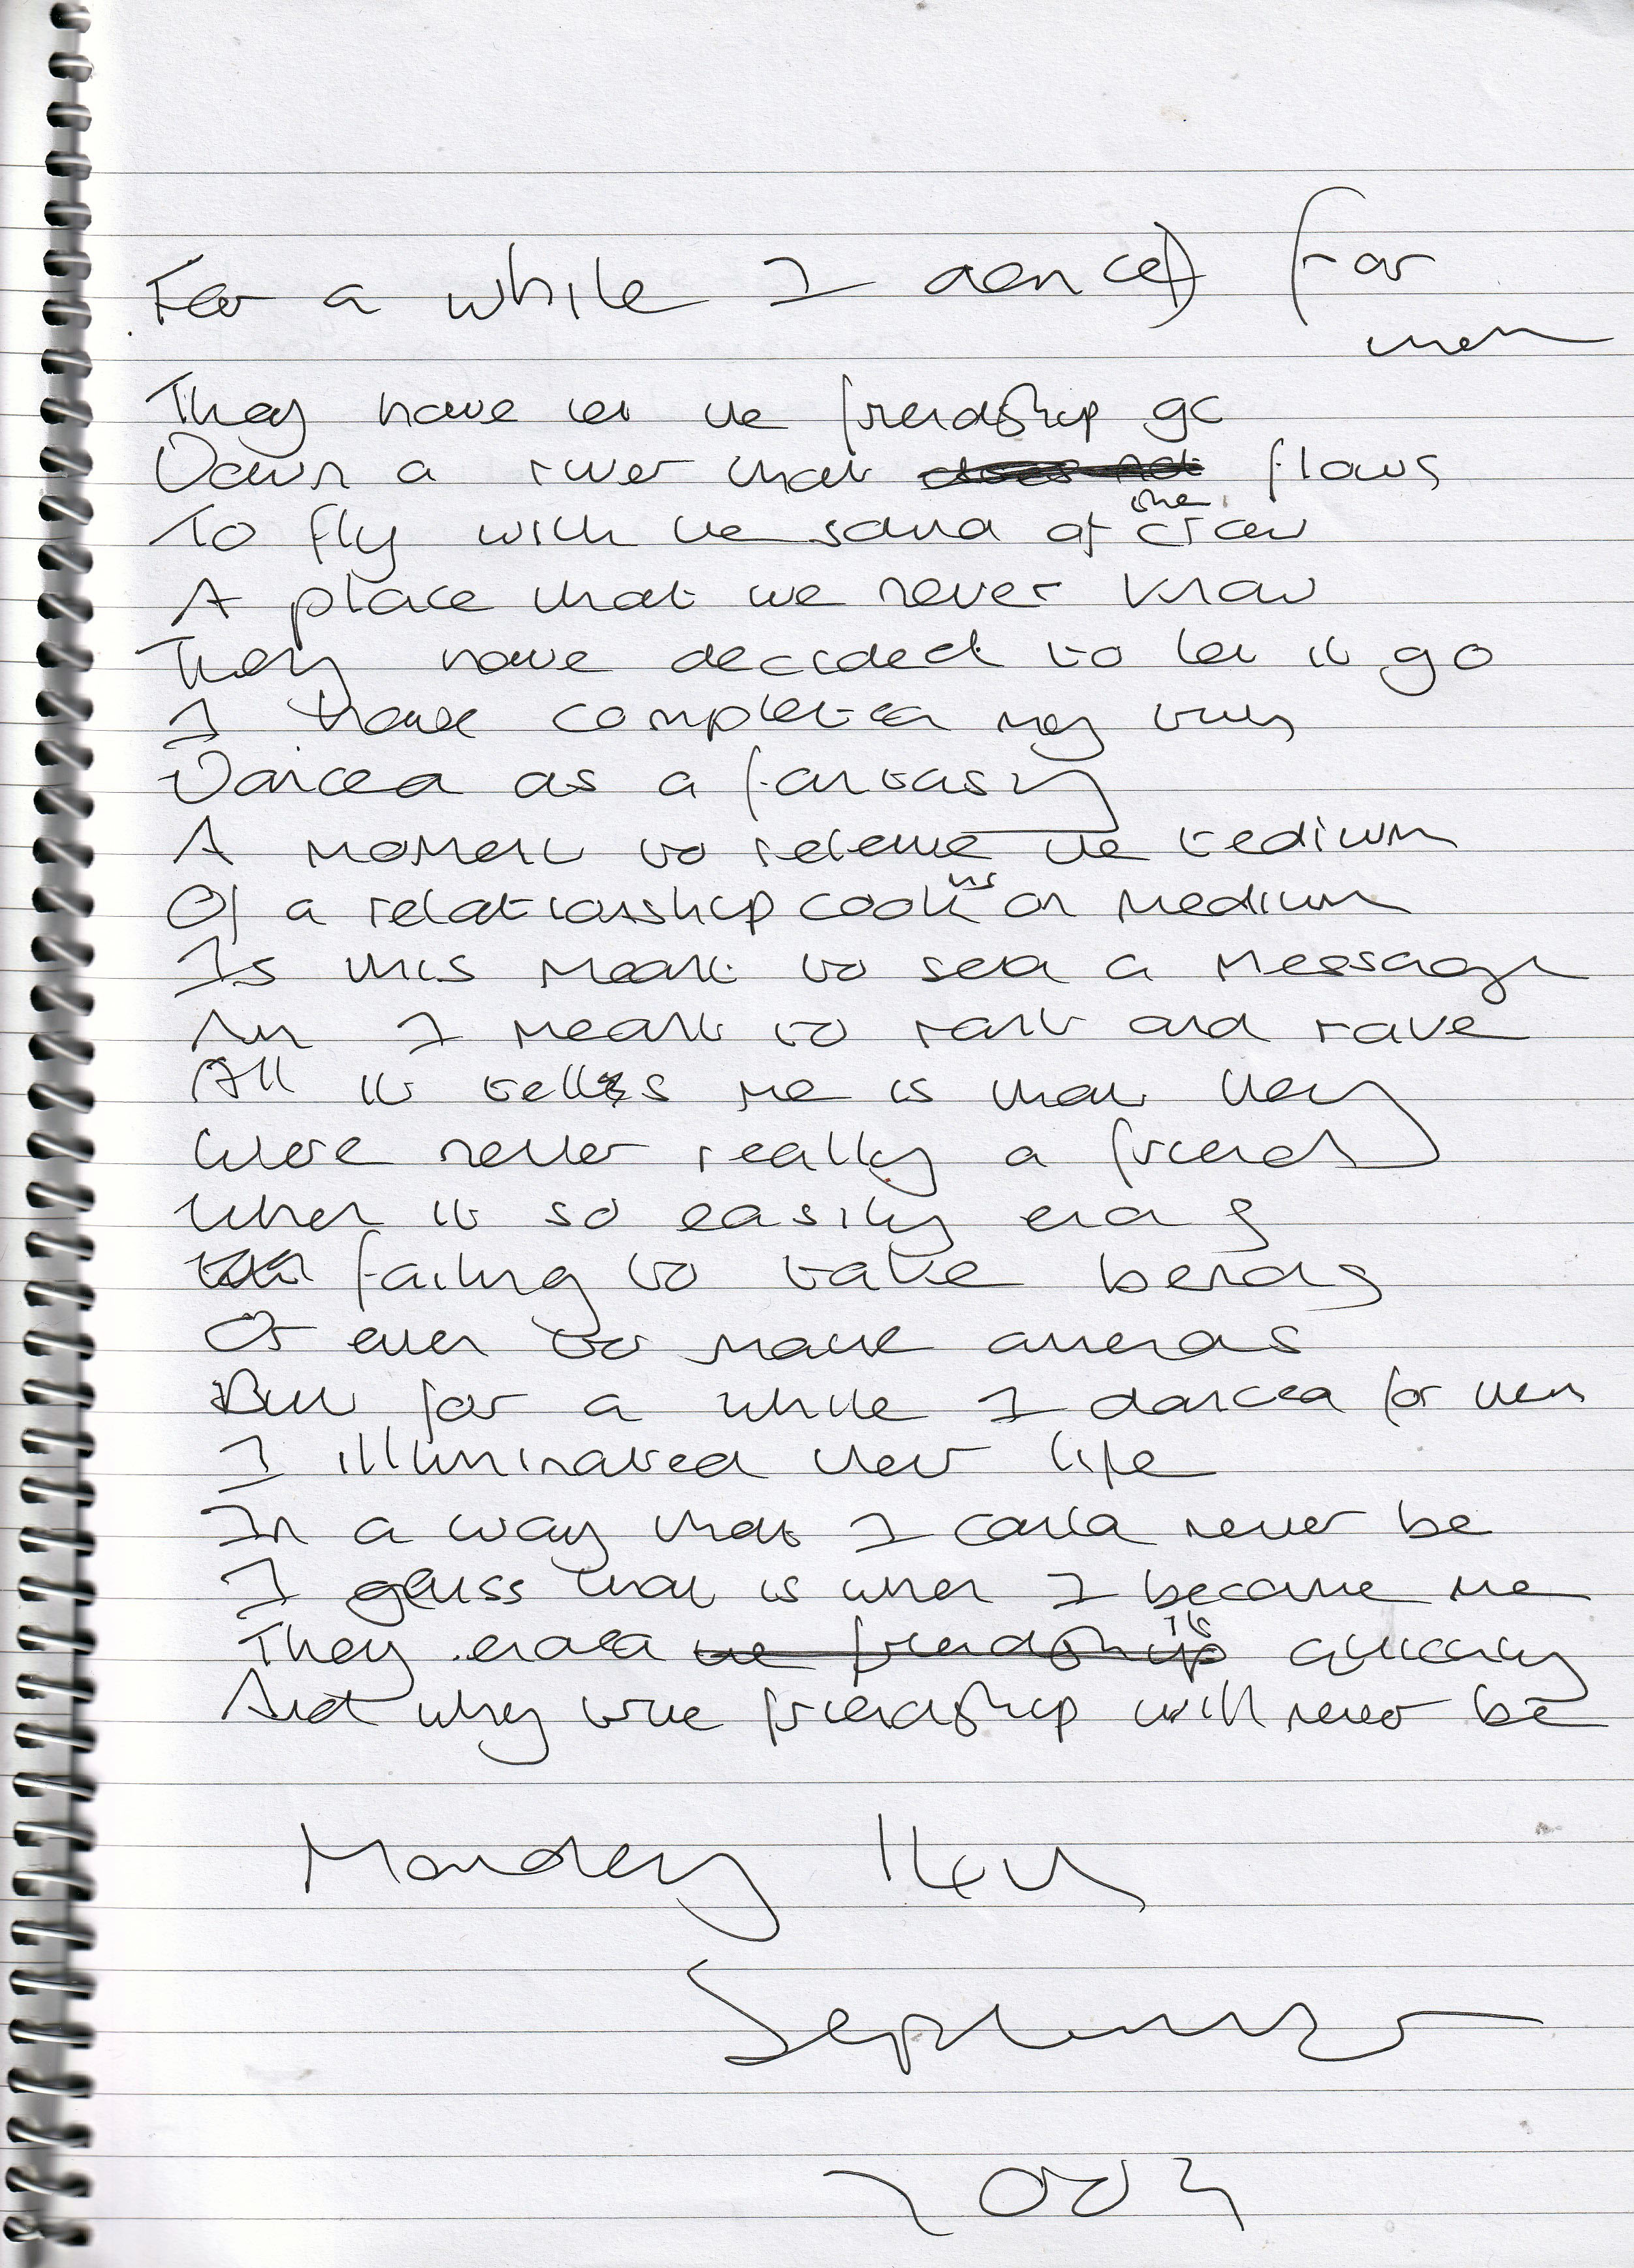 For a while I danced for
them
They have let the friendship go
Down a river that does not flows
To fly with the sound of the crow
A place that we never know
They have decided to let it go
I have completed my
Danced as a fantasy
A moment to relieve the tedium
Of a relationship cooking on medium
Is this meant to send a message
Am I meant to rant and rave
All it tells me is that they
Were never really a friend
When it so easily ends
failing to take bends
Or even to make amends
But for a while I danced for them
I illuminated their life
In a way that I could never be
I guess that is when I became me
They ended the friendship it quickly
And why true friendship will never be
Monday 16th
September